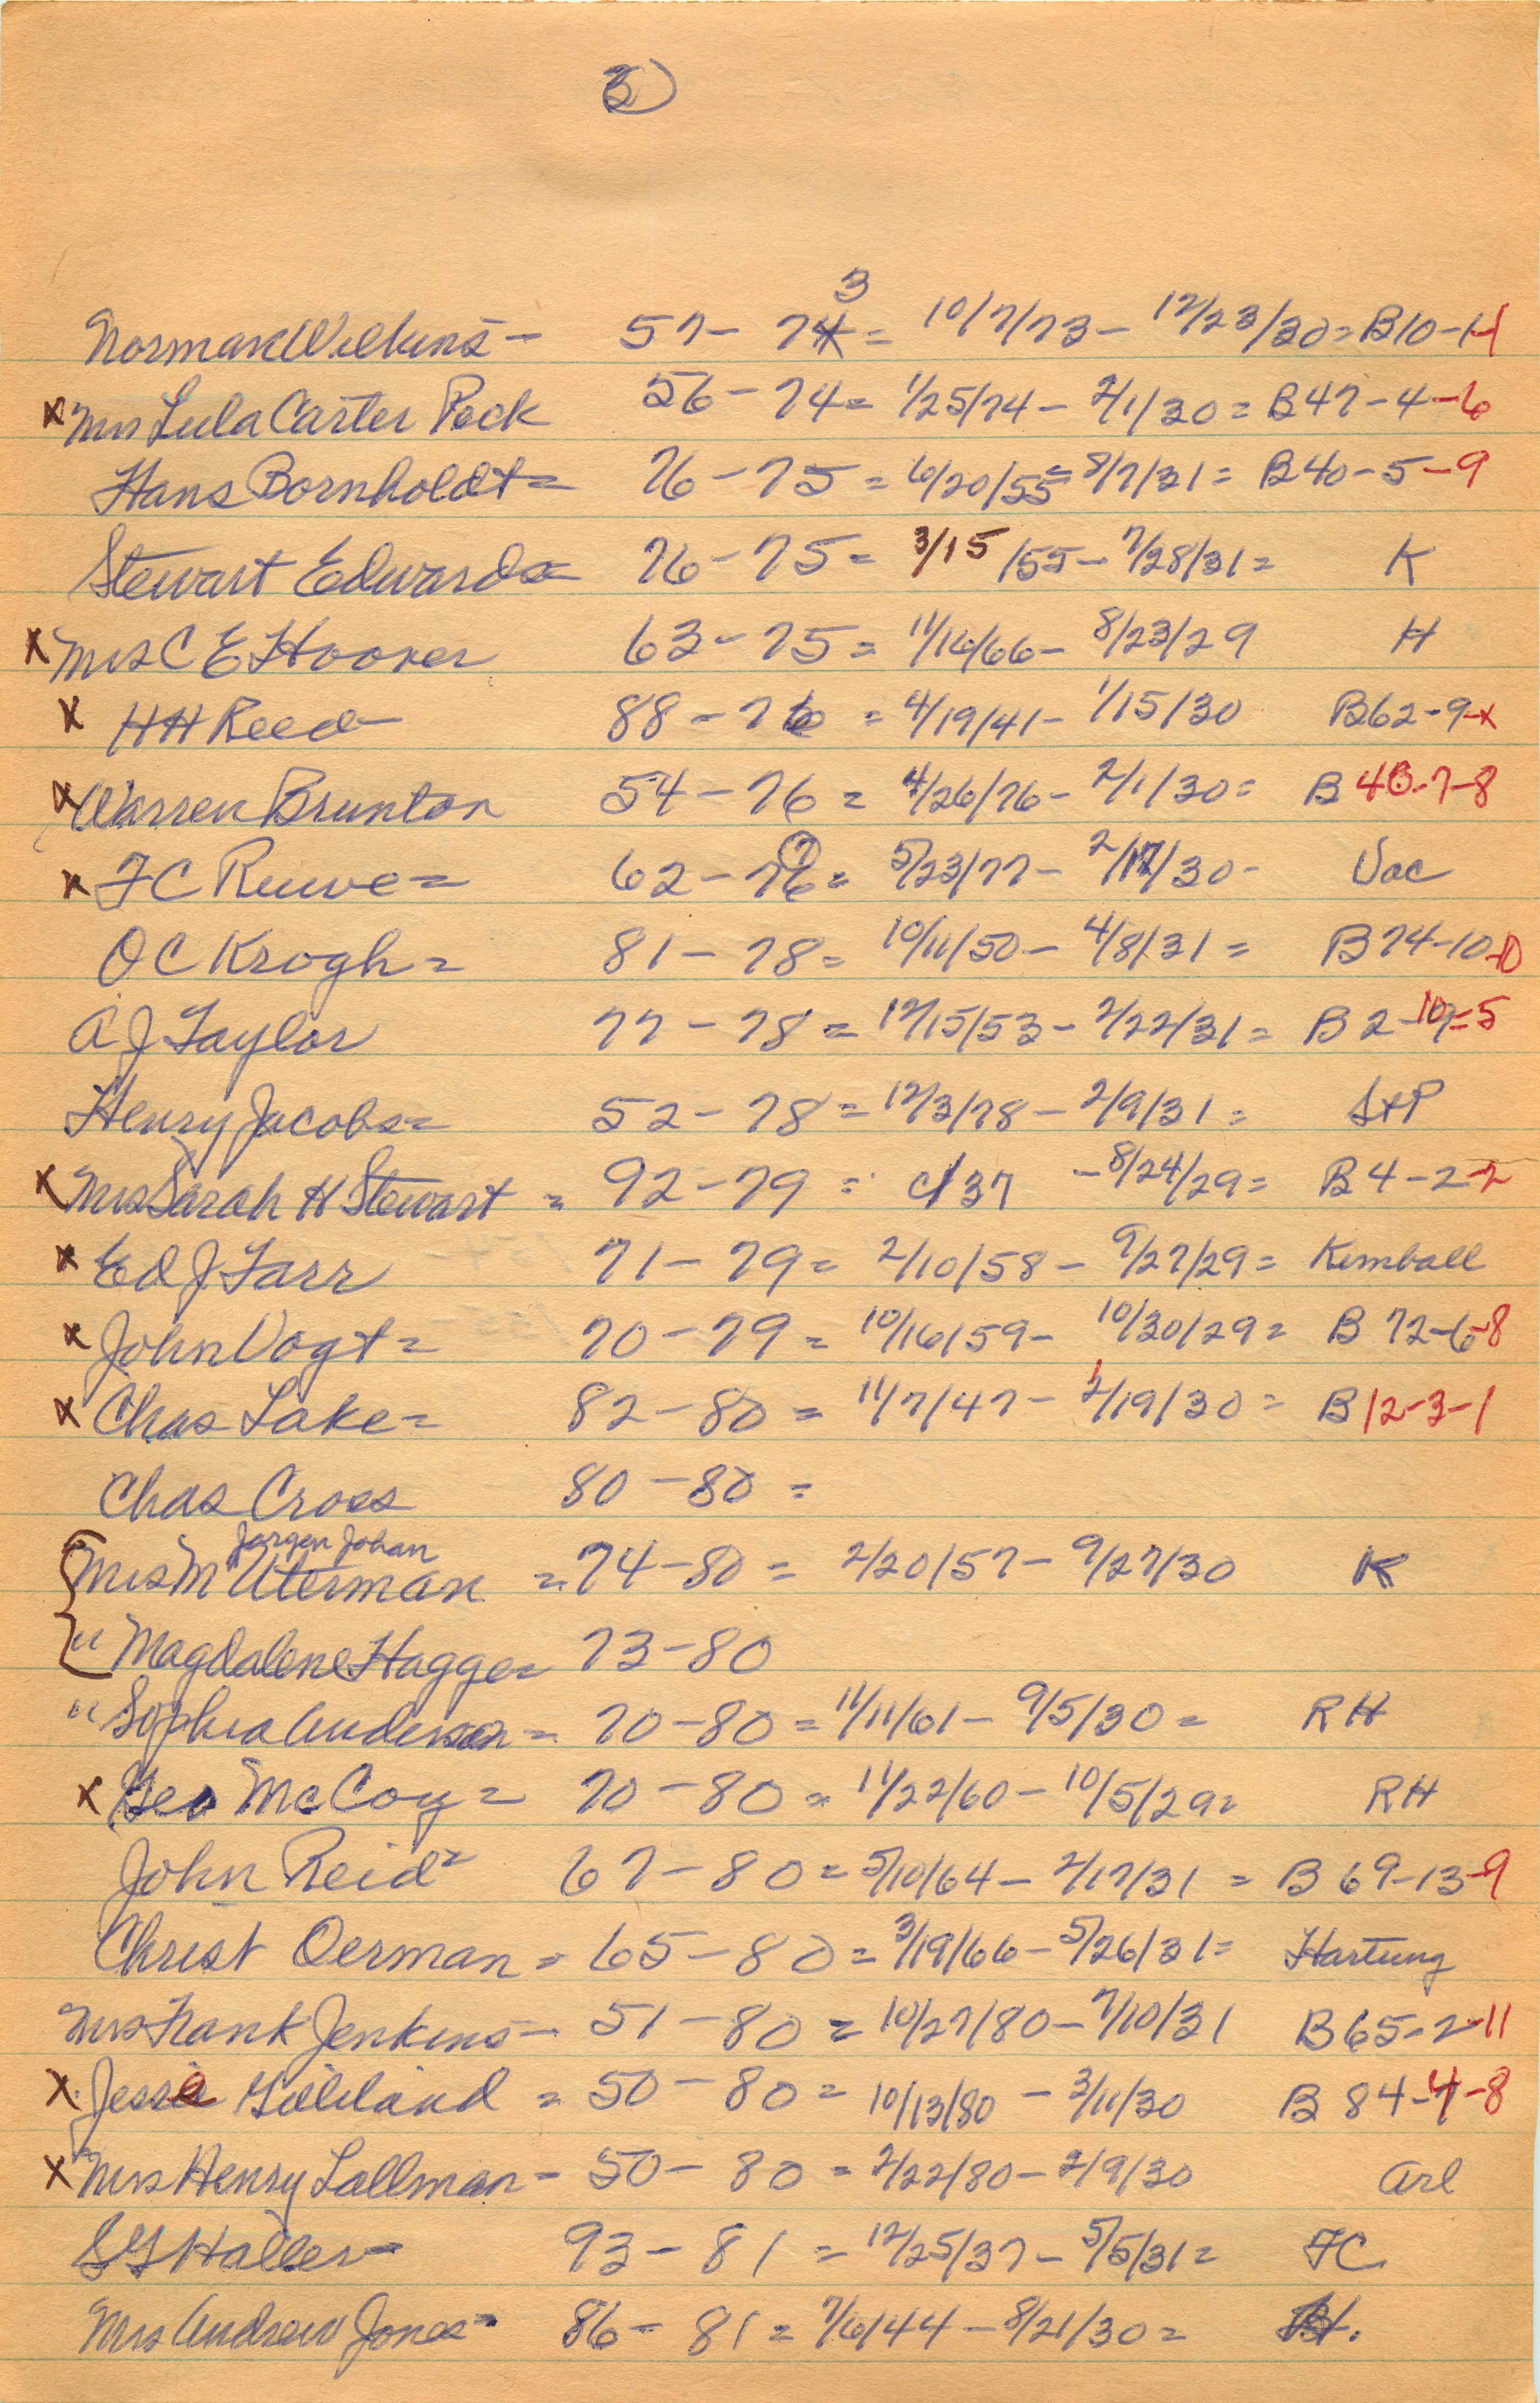 3
3
Norman Wilkins - 57 - 74 = 10/7/73 - 12/23/30 = B10-H-1
x Mrs Lula Carter Peck 56 - 74 = 1/25/74 - 2/1/30 = B47-4-6
Hans Bornholdt = 76 - 75 = 6/20/55 = 8/7/31 = B40-5-9
Stewart Edwards = 76 - 75 = 3/15/55 - 7/28/31 = K
x Mrs C E Hoover 63 - 75 = 11/16/66 - 8/23/29 H
x H H Reed - 88 - 76 = 4/19/41 - 1/15/30 B62-9-x
x Warren Brunton 54 - 76 = 4/26/76 - 2/1/30 = B 40-7-8
x F C Ruwe = 62 - 76 (7) = 5/23/77 - 2/17/30 - Vac
O C Krogh = 81 - 78 = 10/11/50 - 4/8/31 = B74-10-10
A J Taylor 77 - 78 = 12/15/53 - 2/22/31 = B 2-10-5
Henry Jacobs = 52 - 78 = 12/3/78 - 2/9/31 = StP
x Mrs Sarah H Stewart = 92 - 79 = c/37 - 8/24/29 = B 4-2-2
x Ed J Farr 71 - 79 = 2/10/58 - 9/27/29 = Kimball
x John Vogt = 70 - 79 = 10/16/59 - 10/30/29 = B 72-6-8
x Chas Lake = 82 - 80 = 11/7/47 - 1/19/30 = B 12-3-1
Chas Cross 80 - 80 =
Jorgen Johan
Mrs M Uterman = 74 - 80 = 2/20/57 - 9/27/30 K
" Magdalene Hagge = 73 - 80
" Sophia Anderson = 70 - 80 = 11/11/61 - 9/5/30 = RH
x Geo McCoy = 70 - 80 = 11/22/60 - 10/5/29 = RH
John Reid = 67 - 80 = 5/10/64 - 2/17/31 = B 69-13-9
Christ Oerman = 65 - 80 = 3/19/66 - 5/26/31 = Hartung
Mrs Frank Jenkins - 51 - 80 = 10/27/80 - 7/10/31 B65-2-11
x Jesse Gilliland = 50 - 80 = 10/13/80 - 3/11/30 B 84-4-8
x Mrs Henry Lallman - 50 - 80 = 2/22/80 - 2/9/30 Arl
S G Haller = 93 - 81 = 12/25/37 - 5/5/31 = FC
Mrs Andrew Jones = 86 - 81 = 7/6/44 - 8/21/30 =